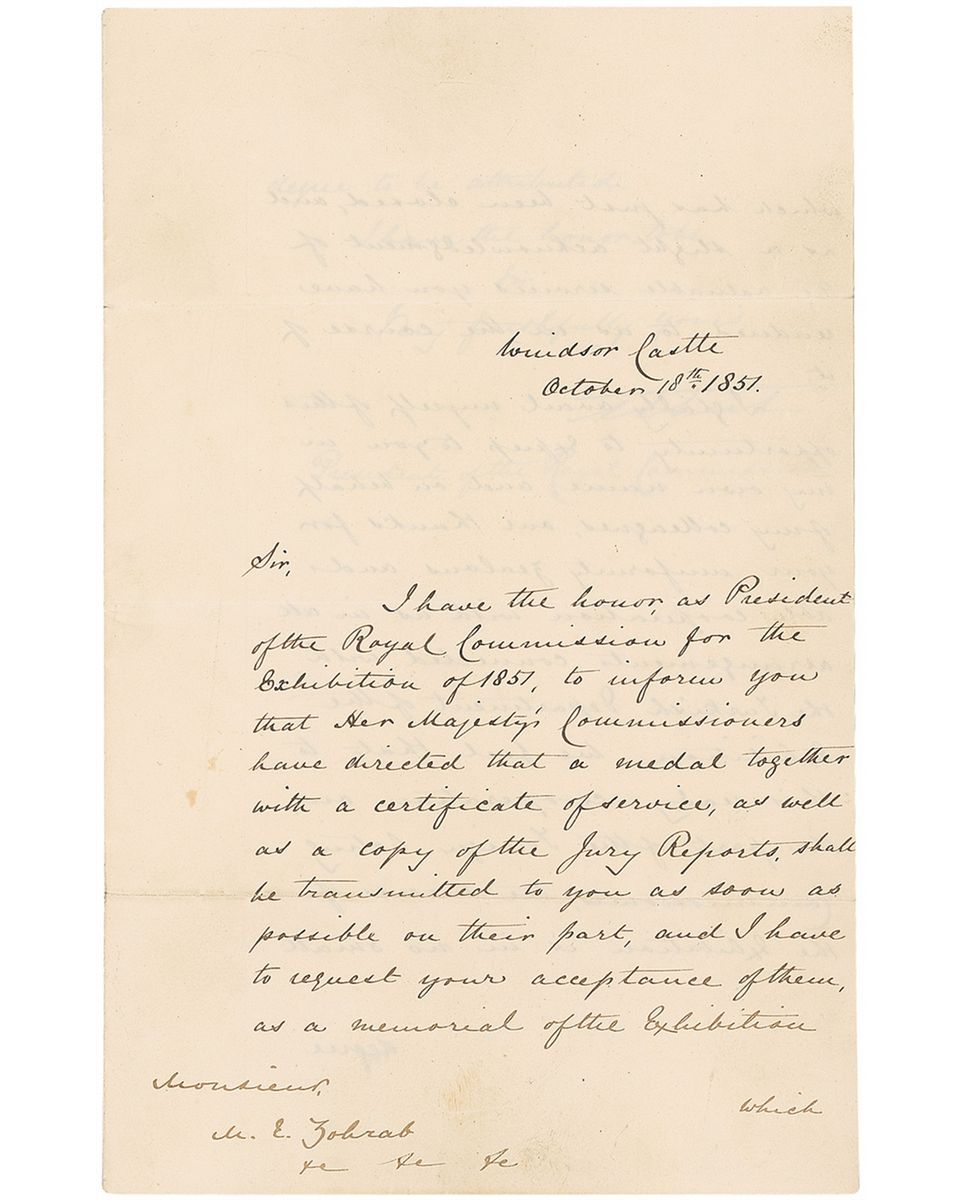 Windsor Castle
October 18th. 1851.
Sir,
I have the honor, as President
of the Royal Commission for the
Exhibition of 1851, to inform you
that Her Majesty's Commissioners
have directed that a medal together
with a certificate of service, as well
as a copy of the Jury Reports, shall
be transmitted to you as soon as
possible on their part, and I have
to request your acceptance of them,
as a memorial of the Exhibition
which
Monsieur,
M. E. Zohrab
&c &c &c